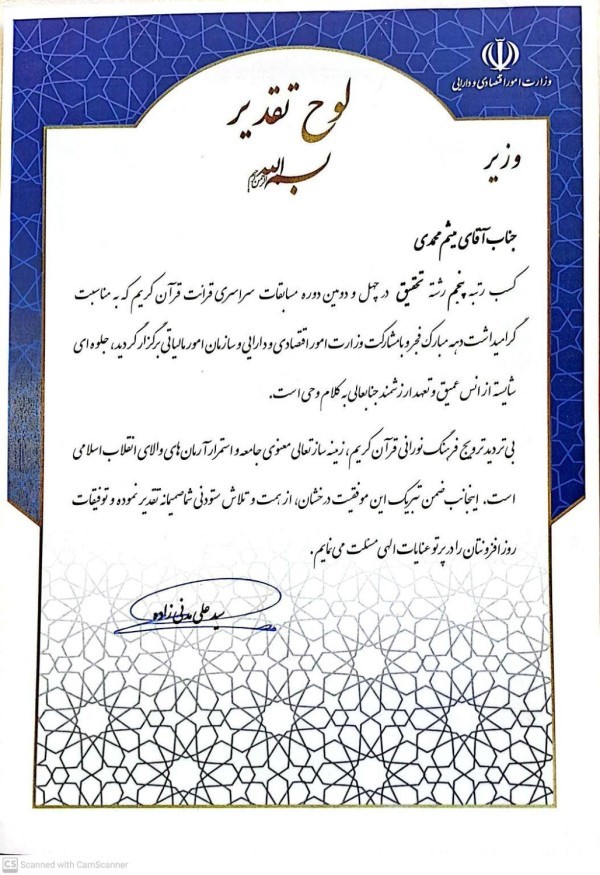 وزارت امور اقتصادی و دارایی
لوح تقدیر
بسم الله الرحمن الرحیم
وزیر
جناب آقای میثم محمدی
کسب رتبه پنجم رشته تحقیق در چهل و دومین دوره مسابقات سراسری قرائت قرآن کریم که به مناسبت
گرامیداشت دهه مبارک فجر و با مشارکت وزارت امور اقتصادی و دارایی و سازمان امور مالیاتی برگزار گردید، جلوه ای
شایسته از انس عمیق و تعهد ارزشمند جنابعالی به کلام وحی است.
بی تردید ترویج فرهنگ نورانی قرآن کریم، زمینه ساز تعالی معنوی جامعه و استمرار آرمان های والای انقلاب اسلامی
است. اینجانب ضمن تبریک این موفقیت درخشان، از همت و تلاش ستودنی شما صمیمانه تقدیر نموده و توفیقات
روزافزونتان را در پرتو عنایات الهی مسئلت می نمایم.
سید علی مدنی زاده
CS Scanned with CamScanner